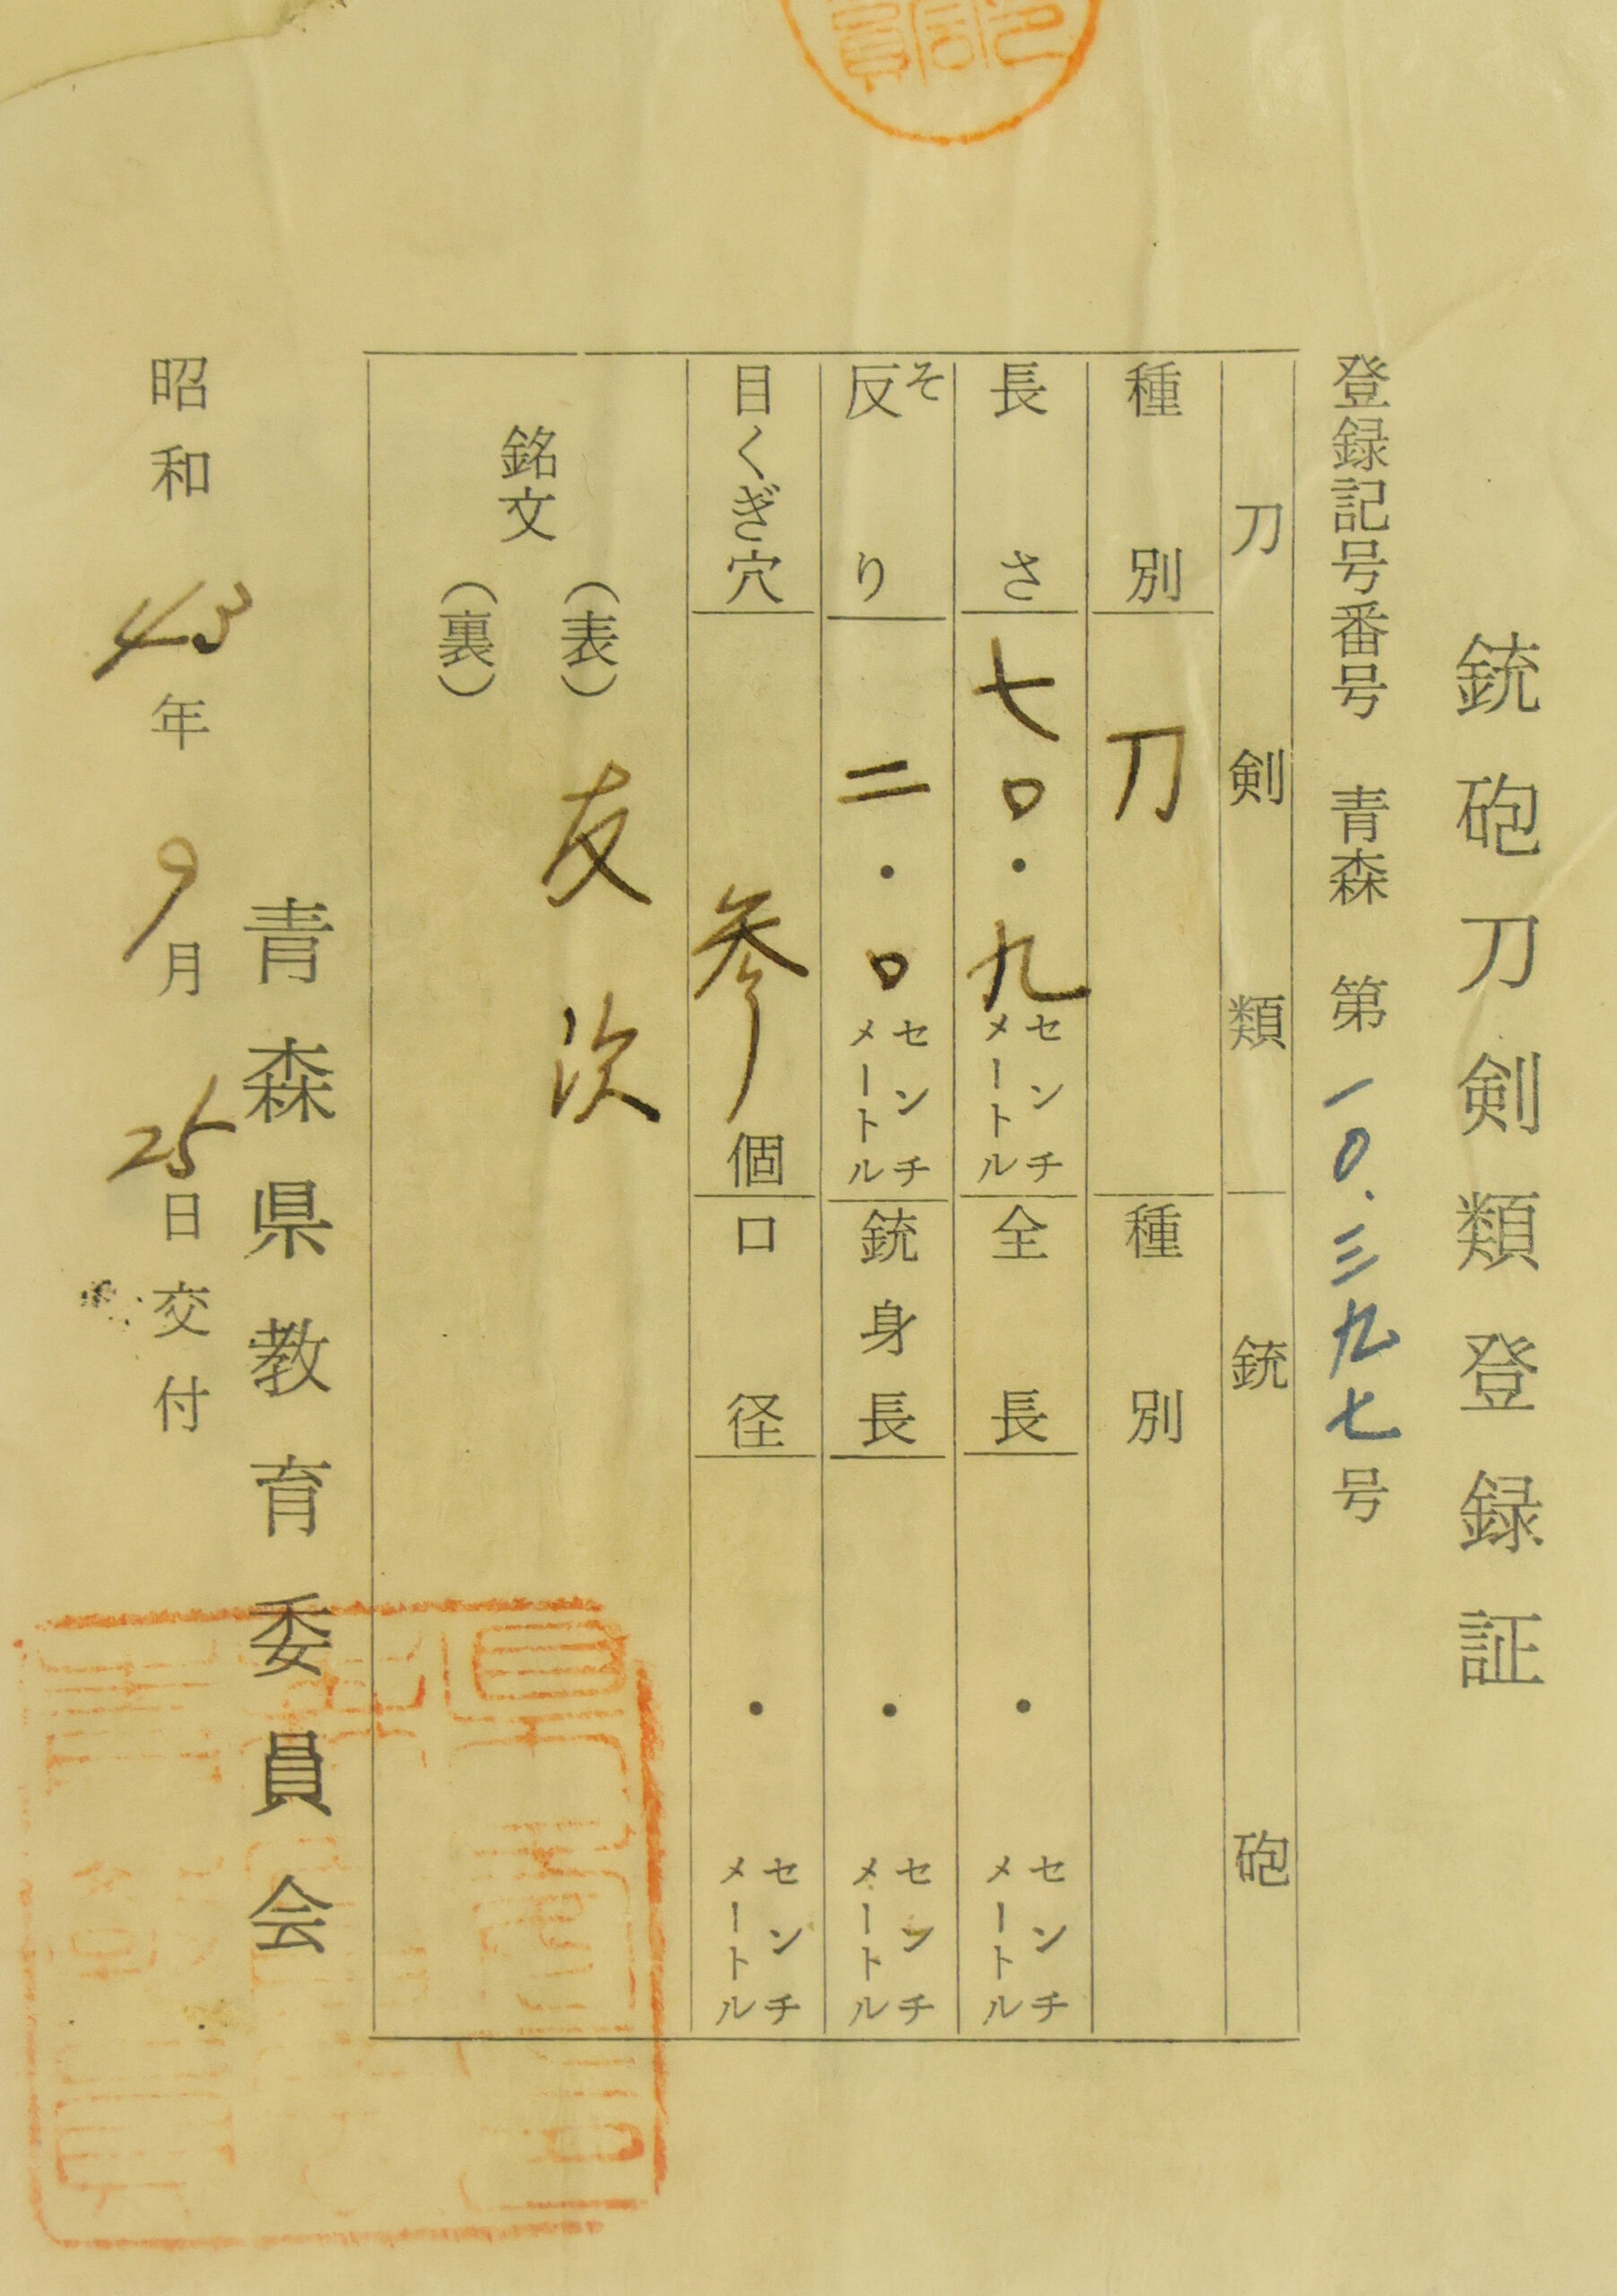 銃砲刀剣類登録証
登録記号番号 青森 第一〇.三九七号
刀剣類
銃砲
種別 刀
長さ 七〇・九 センチメートル
反り そ 二・〇 センチメートル
目くぎ穴 参個
種別
全長 ・ センチメートル
銃身長 ・ センチメートル
口径 ・ センチメートル
銘文
(表) 友次
(裏)
青森県教育委員会
昭和43年9月25日交付